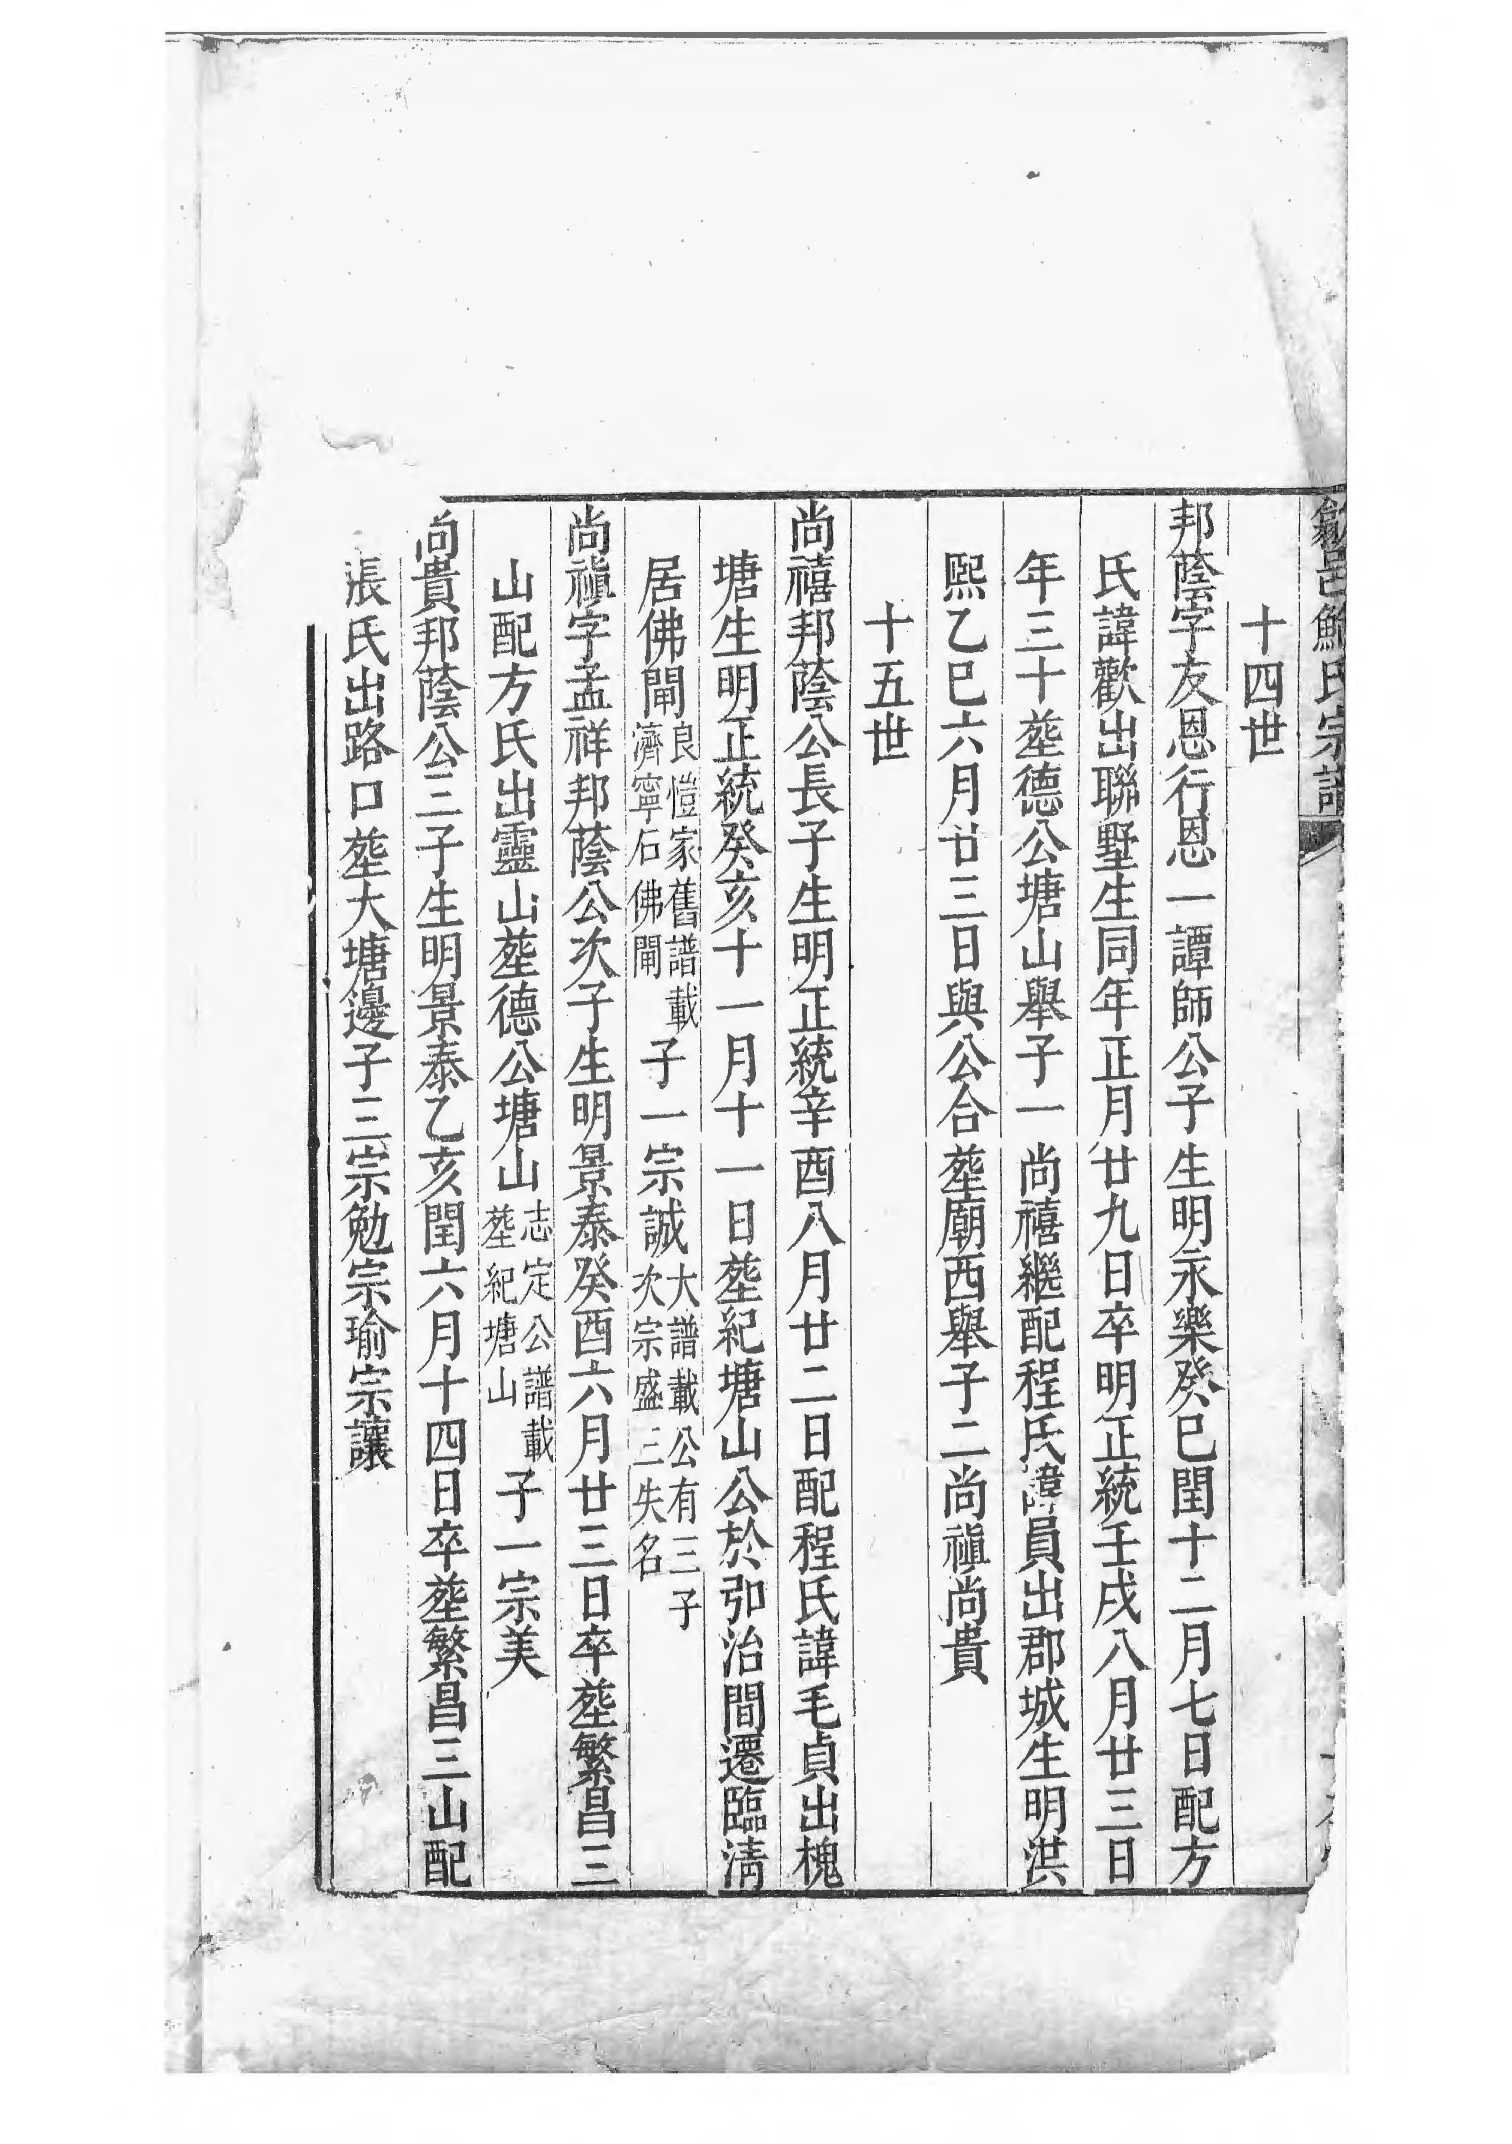 歙邑鮑氏宗譜
十四世
邦蔭字友恩行恩一譚師公子生明永樂癸巳閏十二月七日配方
氏諱歡出聯墅生同年正月廿九日卒明正統壬戌八月廿三日
年三十塟德公塘山舉子一尚禧繼配程氏諱員出郡城生明洪
熙乙巳六月廿三日與公合塟廟西舉子二尚禎尚貴
十五世
尚禧邦蔭公長子生明正統辛酉八月廿二日配程氏諱毛貞出槐
塘生明正統癸亥十一月十一日塟紀塘山公於弘治間遷臨清
居佛閘良愷家舊譜載濟寧石佛閘子一宗誠大譜載公有三子次宗盛三失名
尚禎字孟祥邦蔭公次子生明景泰癸酉六月廿三日卒塟繁昌三
山配方氏出靈山塟德公塘山志定公譜載塟紀塘山子一宗美
尚貴邦蔭公三子生明景泰乙亥閏六月十四日卒塟繁昌三山配
張氏出路口塟大塘邊子三宗勉宗瑜宗讓